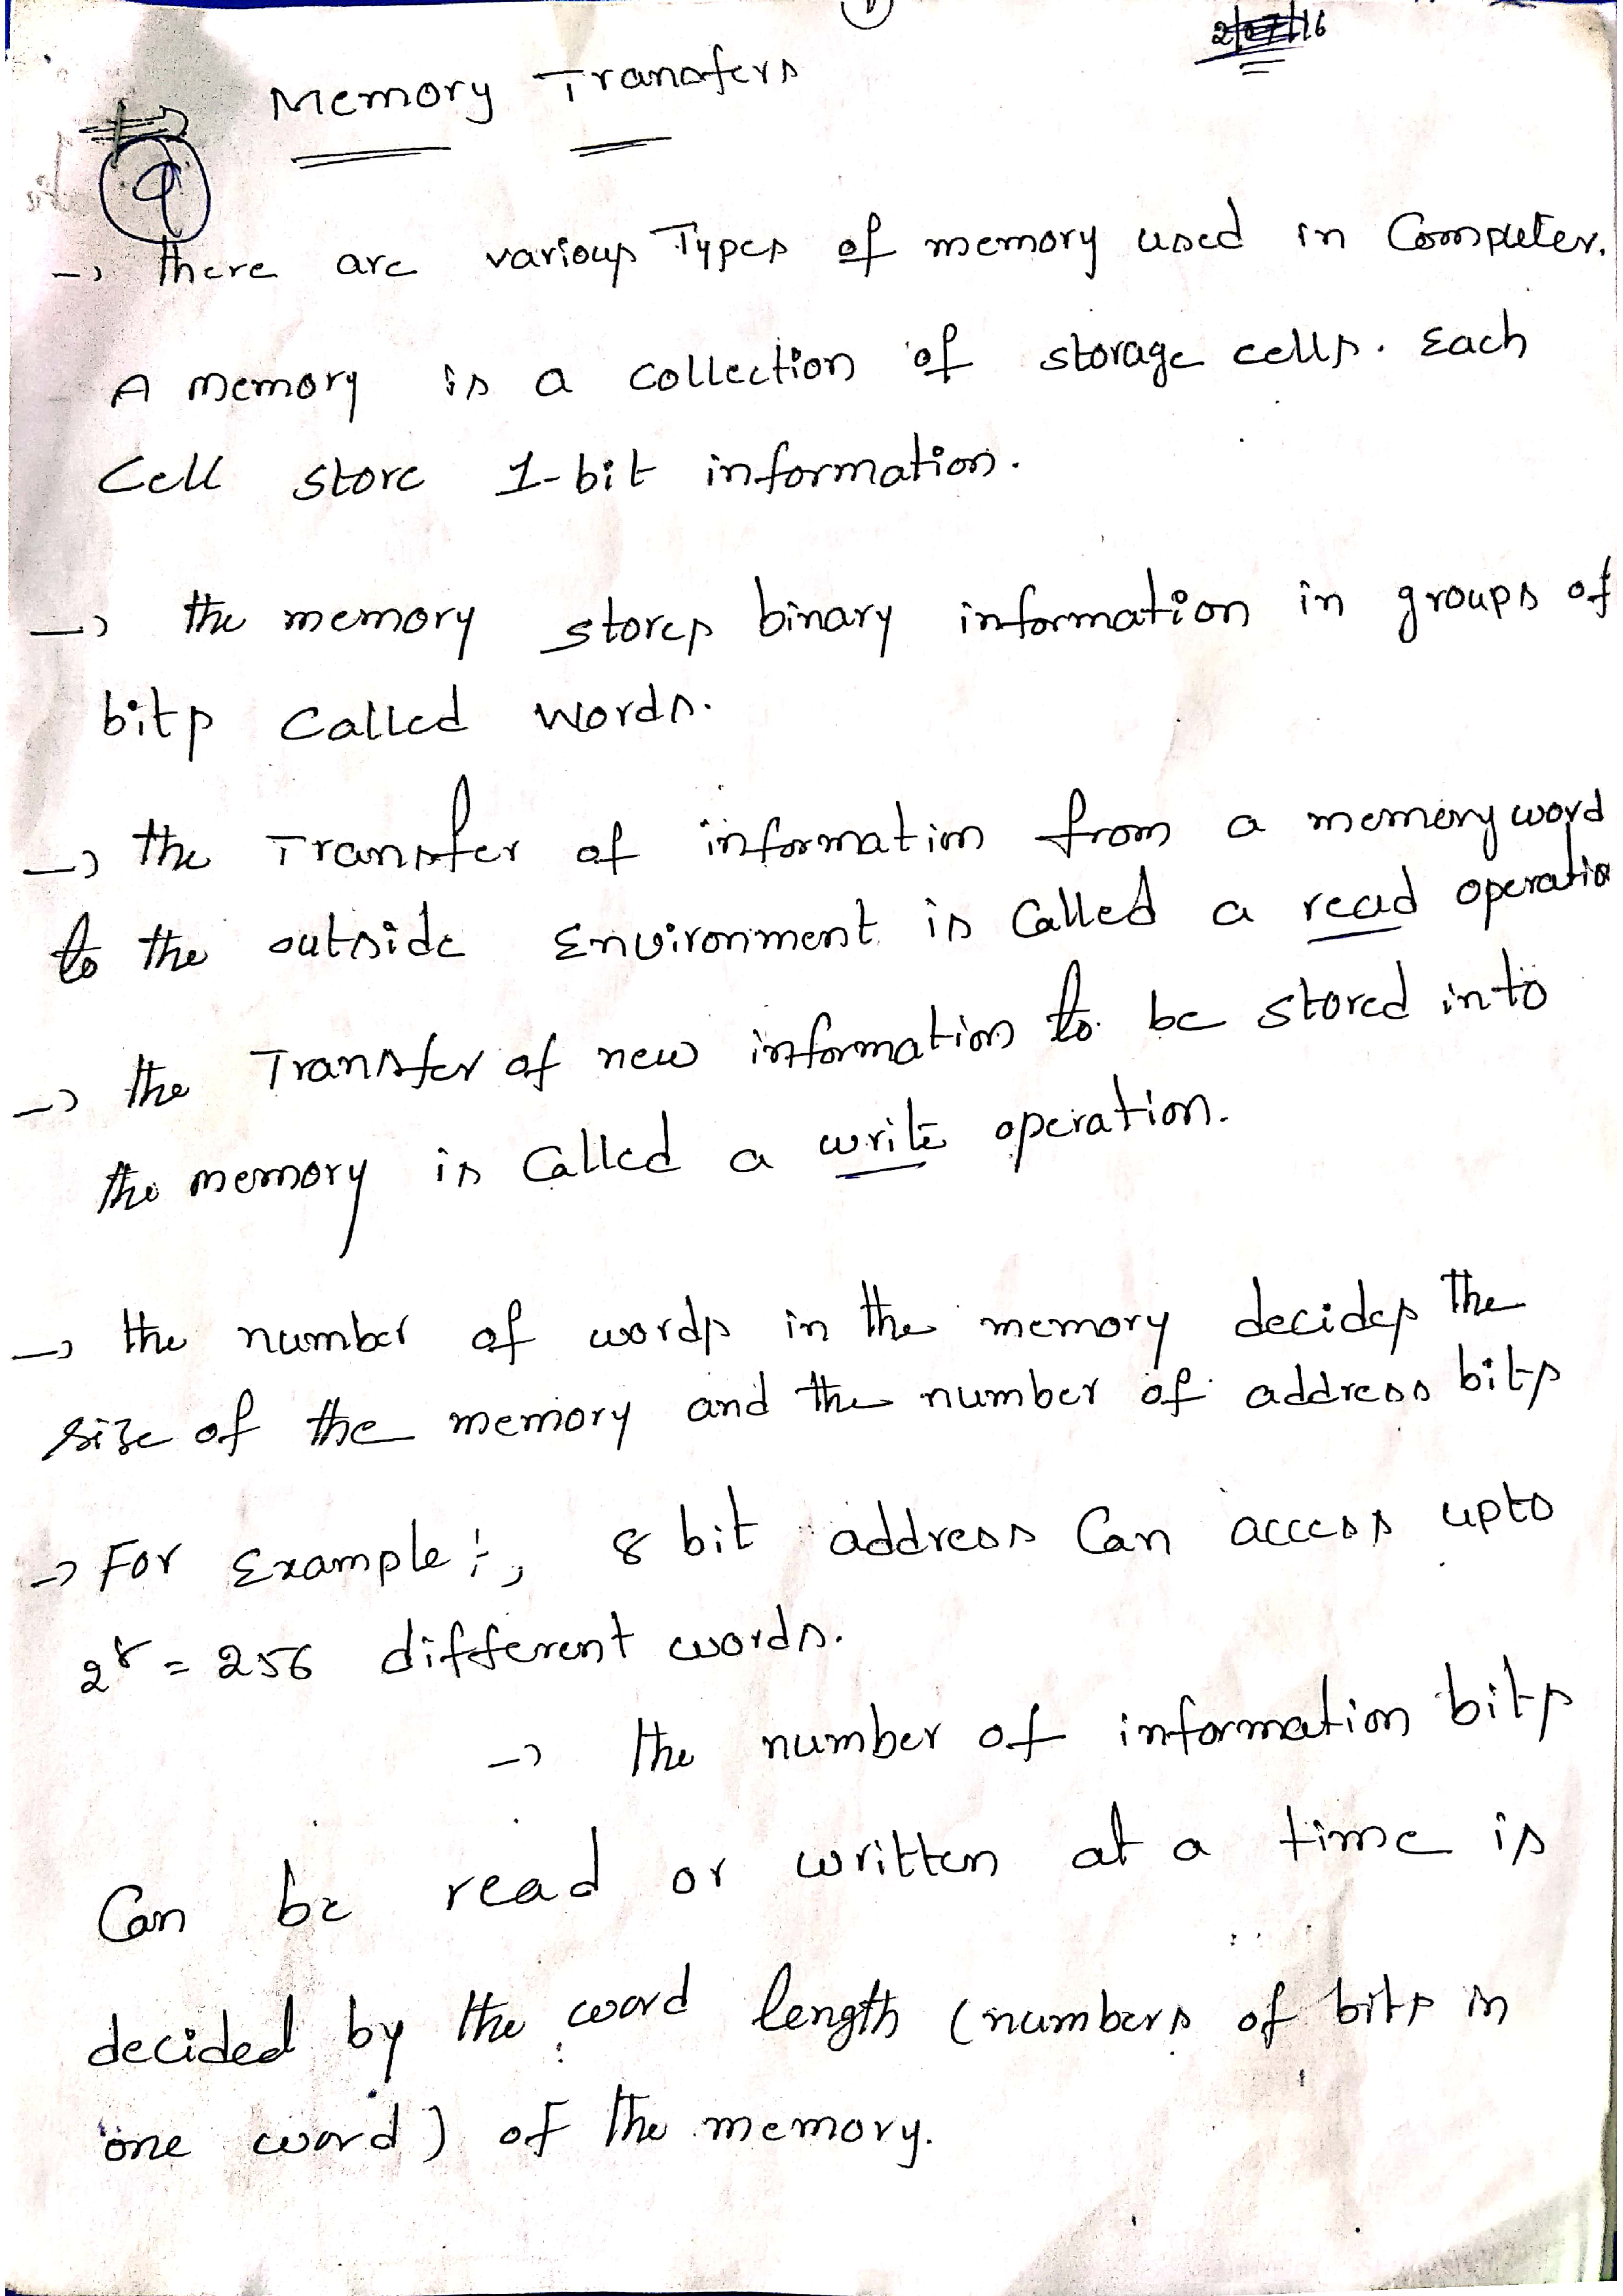 Memory Transfers
9
→ there are various Types of memory used in Computer.
A memory is a collection of storage cells. Each
Cell store 1-bit information.
→ the memory stores binary information in groups of
bits Called words.
→ the Transfer of information from a memory word
to the outside Environment is Called a read operatio
→ the Transfer of new information to be stored into
the memory is Called a write operation.
→ the number of words in the memory decides the
size of the memory and the number of address bits
→ For Example:-, 8 bit address Can access upto
2⁸ = 256 different words.
→ the number of information bits
Can be read or written at a time is
decided by the word length (numbers of bits in
one word) of the memory.